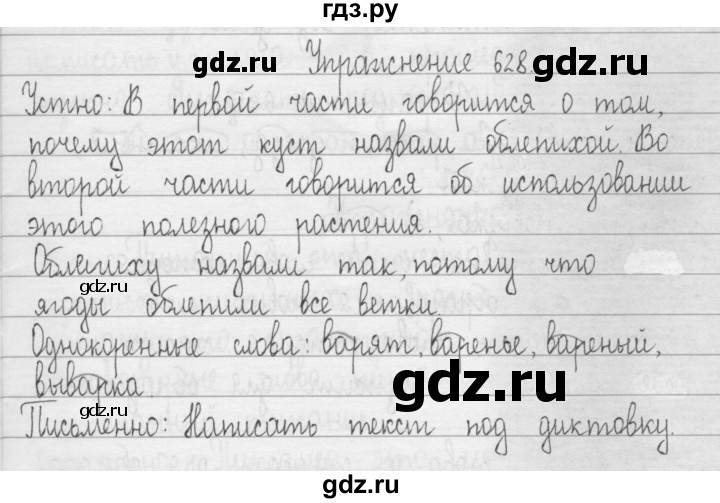 гдз.ру
Упражнение 628.
гдз.ру гдз.ру
Устно: В первой части говорится о том,
почему этот куст назвали облепихой. Во
второй части говорится об использовании
этого полезного растения.
Облепиху назвали так, потому что
ягоды облепили все ветки.
Однокоренные слова: варят, варенье, вареный,
выварка
гдз.ру
Письменно: Написать текст под диктовку.